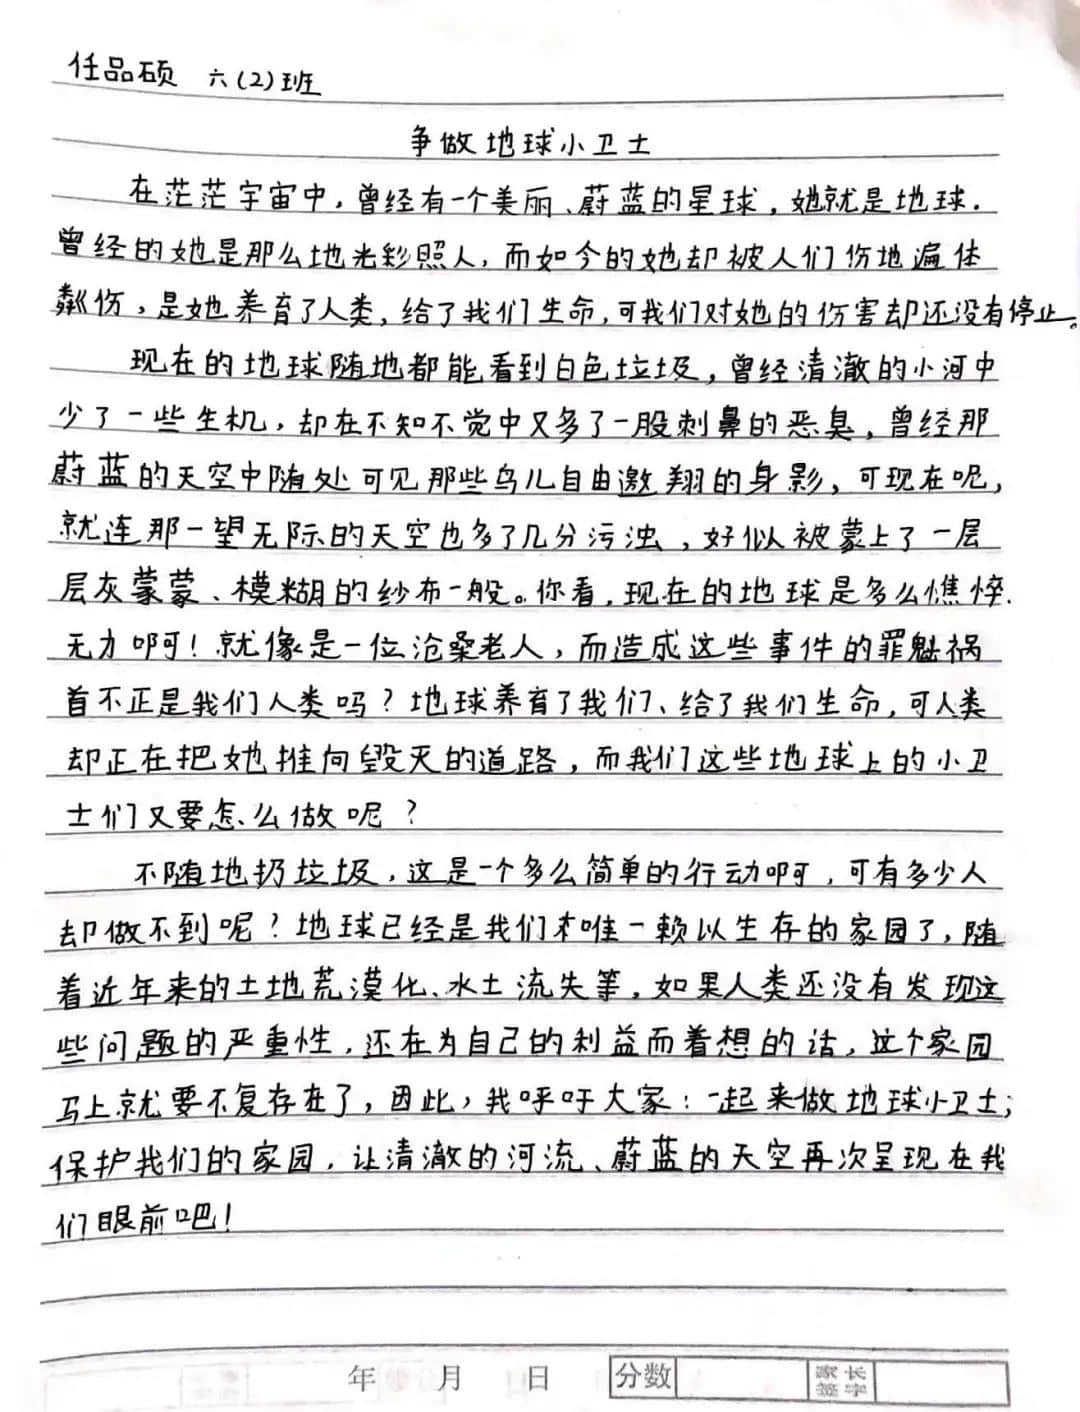 任品硕 六(2)班
争做地球小卫士
在茫茫宇宙中，曾经有一个美丽、蔚蓝的星球，她就是地球.
曾经的她是那么地光彩照人，而如今的她却被人们伤地遍体
粼伤，是她养育了人类，给了我们生命，可我们对她的伤害却还没有停止。
现在的地球随地都能看到白色垃圾，曾经清澈的小河中
少了一些生机，却在不知不觉中又多了一股刺鼻的恶臭，曾经那
蔚蓝的天空中随处可见那些鸟儿自由激翔的身影，可现在呢，
就连那一望无际的天空也多了几分污浊，好似被蒙上了一层
层灰蒙蒙、模糊的纱布一般。你看，现在的地球是多么憔悴.
无力啊！就像是一位沧桑老人，而造成这些事件的罪魁祸
首不正是我们人类吗？地球养育了我们、给了我们生命，可人类
却正在把她推向毁灭的道路，而我们这些地球上的小卫
士们又要怎么做呢？
不随地扔垃圾，这是一个多么简单的行动啊，可有多少人
却做不到呢？地球已经是我们唯一赖以生存的家园了，随
着近年来的土地荒漠化、水土流失等，如果人类还没有发现这
些问题的严重性，还在为自己的利益而着想的话，这个家园
马上就要不复存在了，因此，我呼吁大家：一起来做地球小卫士；
保护我们的家园，让清澈的河流、蔚蓝的天空再次呈现在我
们眼前吧！
年 月 日 分数 家长签字